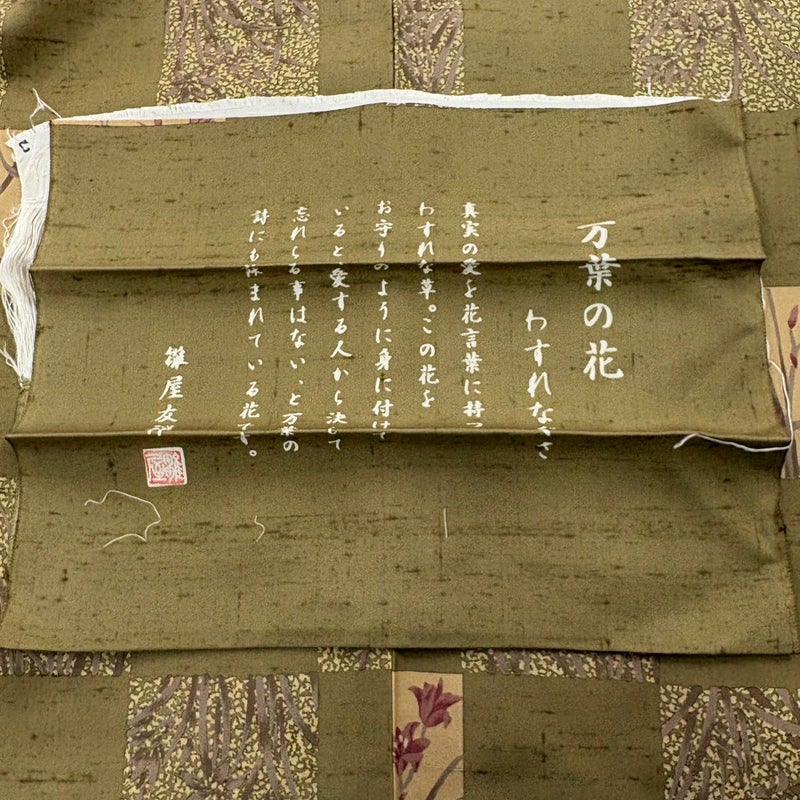 万葉の花
わすれなぐさ
真実の愛を花言葉に持つ
わすれな草。この花を
お守りのように身に付けて
いると愛する人から決して
忘れる事はない、と万葉の
詩にも詠まれている花です。
雛屋友禅